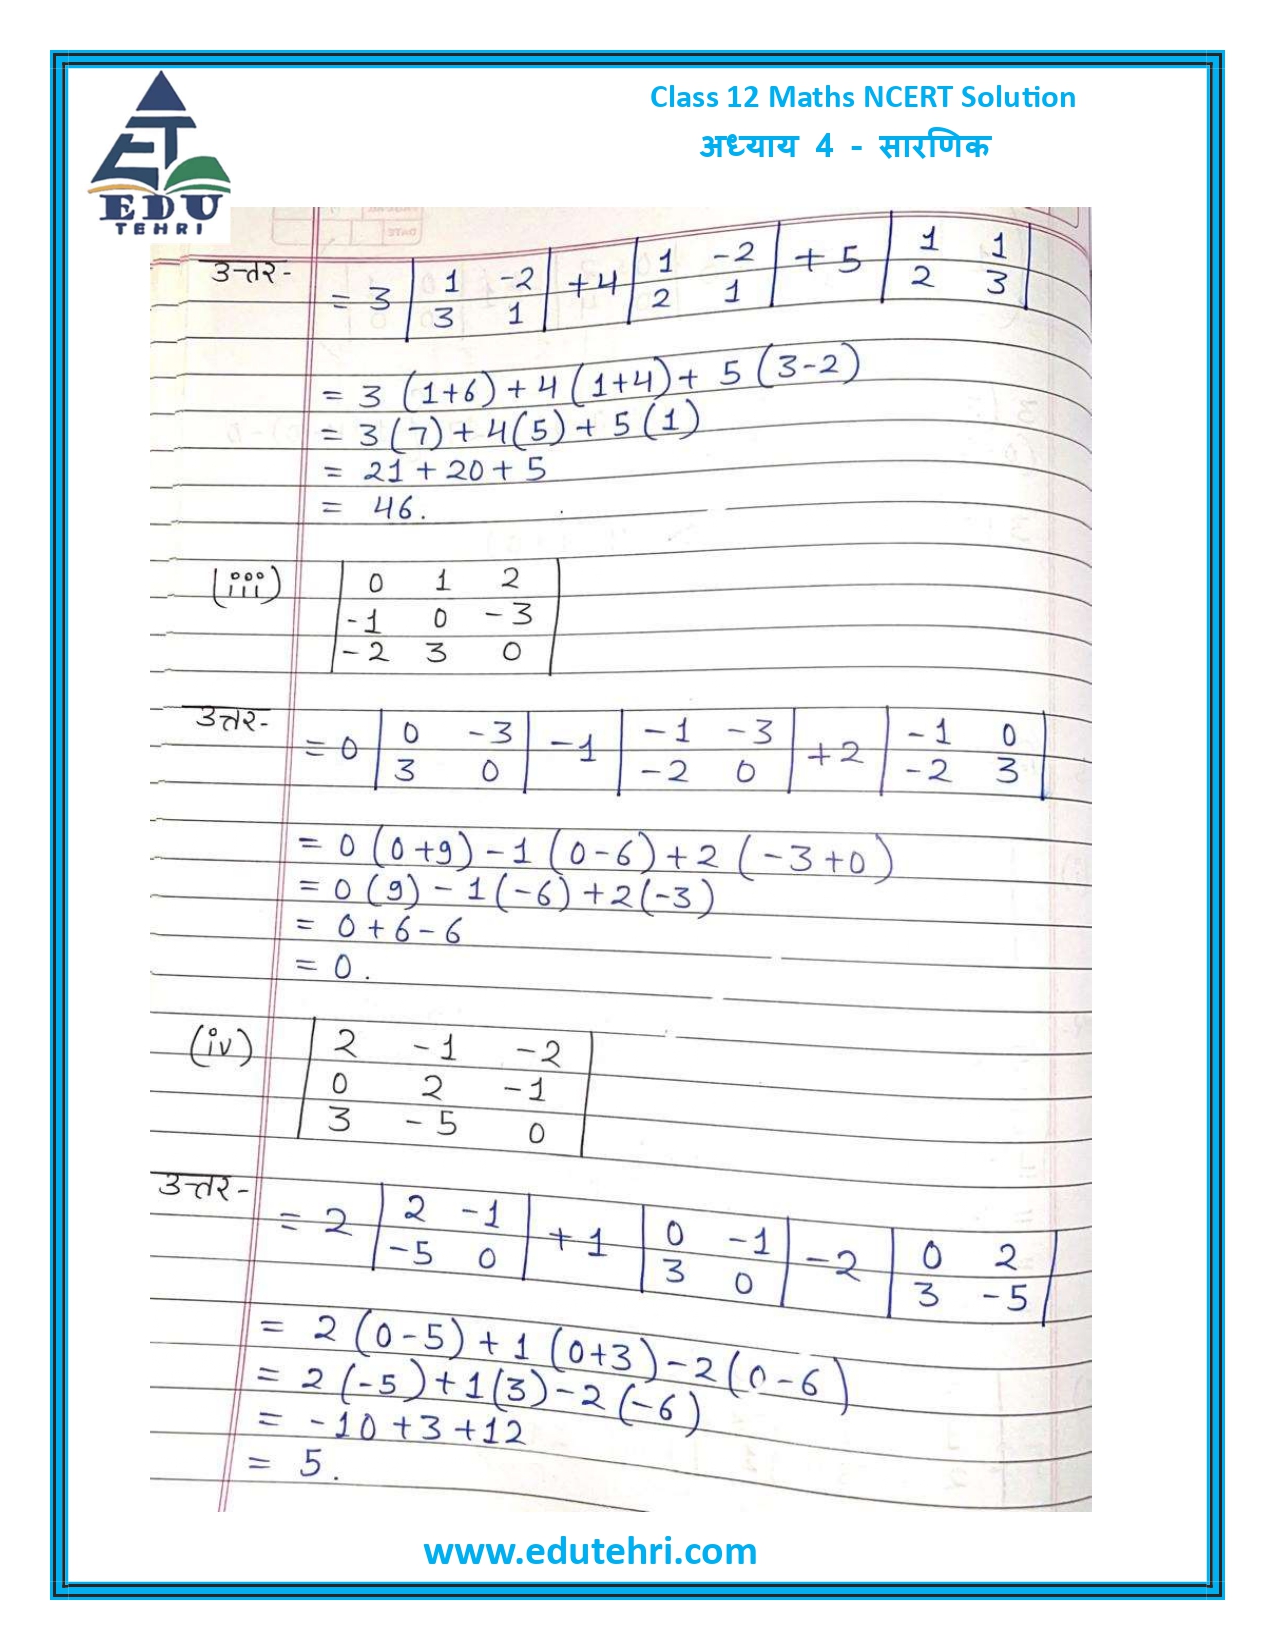 Class 12 Maths NCERT Solution
अध्याय 4 - सारणिक
EDU
TEHRI
उत्तर- = 3 | 1 -2 | + 4 | 1 -2 | + 5 | 1 1 |
| 3 1 | | 2 1 | | 2 3 |
= 3 (1+6) + 4 (1+4) + 5 (3-2)
= 3(7) + 4(5) + 5(1)
= 21 + 20 + 5
= 46.
(iii) | 0 1 2 |
| -1 0 -3 |
| -2 3 0 |
उत्तर- = 0 | 0 -3 | -1 | -1 -3 | +2 | -1 0 |
| 3 0 | | -2 0 | | -2 3 |
= 0 (0+9) - 1 (0-6) + 2 (-3+0)
= 0 (9) - 1(-6) + 2(-3)
= 0 + 6 - 6
= 0.
(iv) | 2 -1 -2 |
| 0 2 -1 |
| 3 -5 0 |
उत्तर- = 2 | 2 -1 | + 1 | 0 -1 | -2 | 0 2 |
| -5 0 | | 3 0 | | 3 -5 |
= 2 (0-5) + 1 (0+3) - 2 (0-6)
= 2 (-5) + 1(3) - 2 (-6)
= -10 + 3 + 12
= 5.
www.edutehri.com